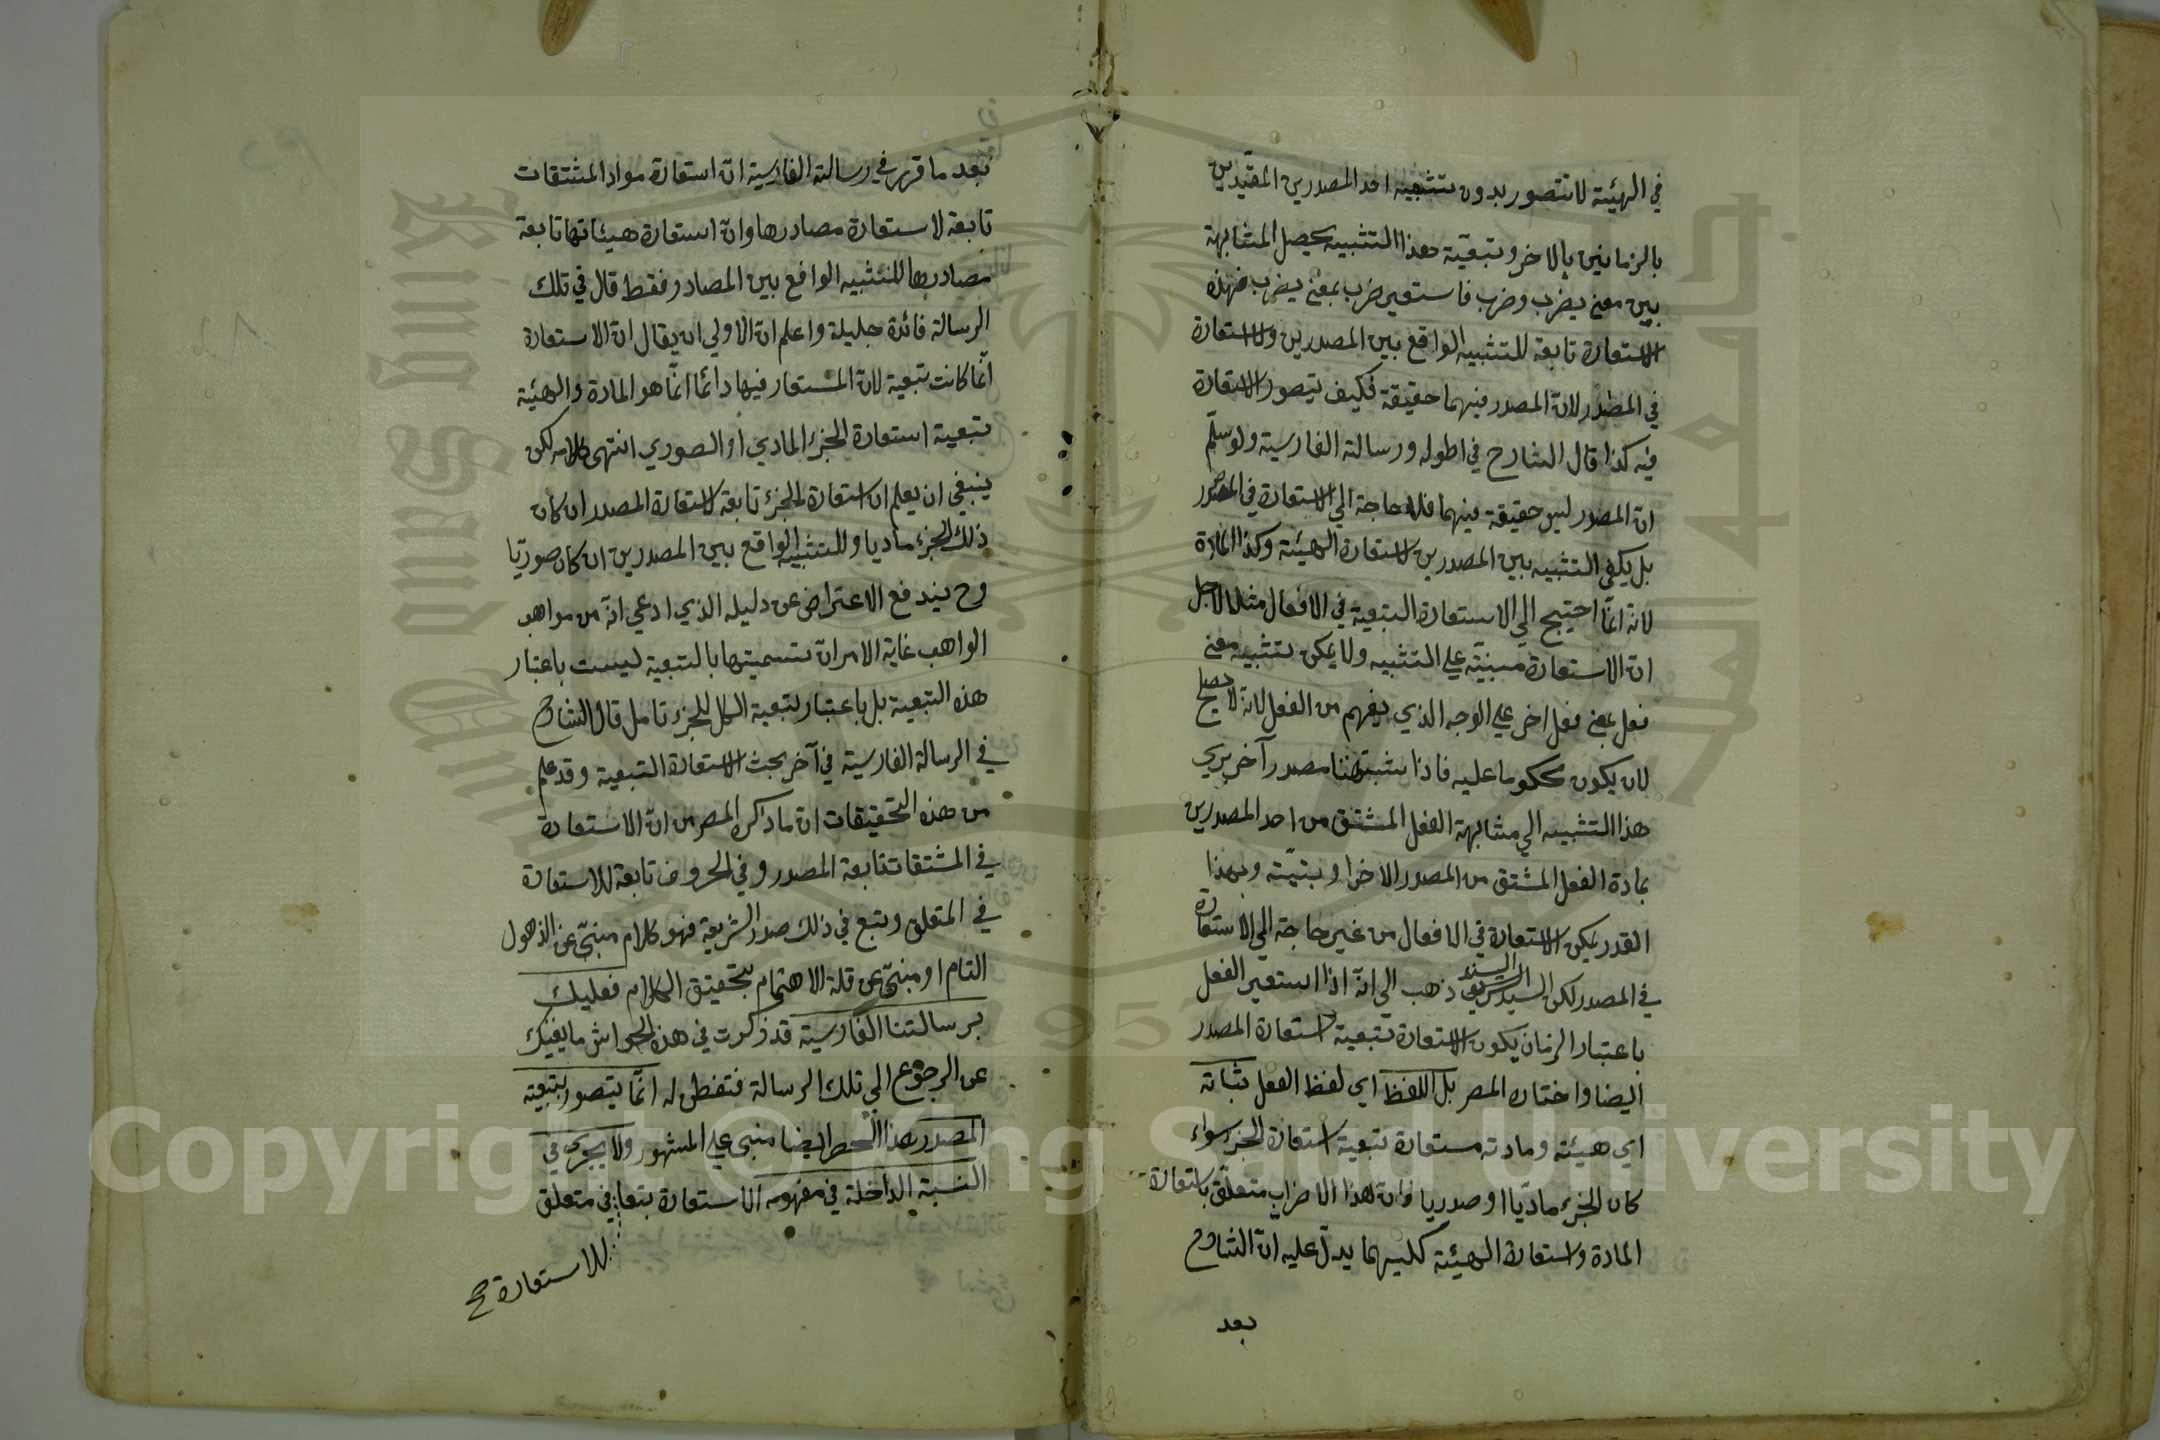 في الهيئة لا تتصور بدون تشبيه احد المصدرين المقيدين
بالزمانين بالاخر وتبعية هذا التشبيه يحصل المشابهة
بين معنى يضرب وضرب فاستعير ضرب بمعنى يضرب فهذه
الاستعارة تابعة للتشبيه الواقع بين المصدرين ولا استعارة
في المصدر لان المصدر فيهما حقيقة فكيف يتصور الاستعارة
فيه كذا قال الشارح في اطوله ورسالته الفارسية ولو سلّم
ان المصدر ليس حقيقة فيهما فلا حاجة الي الاستعارة في المصدر
بل يكفي التشبيه بين المصدرين لاستعارة الهيئة وكذا المادة
لانه انمّا احتيج الي الاستعارة التبعية في الافعال مثلا لاجل
ان الاستعارة مبنيّة علي التشبيه ولا يمكن تشبيه معنى
فعل بمعنى فعل اخر علي الوجه الذي يفهم من الفعل لانه لا يصلح
لان يكون محكوما عليه فاذا شبه مصدر آخر يسري
هذا التشبيه الي مشابهة الفعل المشتق من احد المصدرين
بمادة الفعل المشتق من المصدر الاخر او بنيّته وبهذا
القدر يمكن الاستعارة في الافعال من غير حاجة الي الاستعارة
في المصدر لكن السيد السند الشريف ذهب الي انّه اذا استعير الفعل
باعتبار الزمان يكون الاستعارة تبعية استعارة المصدر
ايضا واختاره المص بل اللفظ اي لفظ الفعل بثباته
اي هيئته ومادته مستعارة تبعية استعارة الجزء سواء
كان الجزء ماديّا او صوريا وان هذا الاضراب متعلّق باستعارة
المادة واستعارة الهيئة كليهما يدلّ عليه انّ الشارح
بعد
بعد ما قرر في رسالته الفارسية ان استعارة مواد المشتقات
تابعة لاستعارة مصادرها وانّ استعارة هيئاتها تابعة
مصادرها للتشبيه الواقع بين المصادر فقط قال في تلك
الرسالة فائدة جليلة واعلم ان الاولي ان يقال انّ الاستعارة
انّما كانت تبعية لان المستعار فيها دائما انّما هو المادة والهيئة
تبعية استعارة الجزء المادي او الصوري انتهى كلامه لكن
ينبغي ان يعلم ان استعارة الجزء تابعة لاستعارة المصدر ان كان
ذلك الجزء ماديا وللتشبيه الواقع بين المصدرين ان كان صوريّا
وح يندفع الاعتراض عن دليله الذي ادعي انّه من مواهب
الواهب غاية الامر ان تسميتها بالتبعية ليست باعتبار
هذه التبعية بل باعتبار تبعية الكل للجزء تامل قال الشارح
في الرسالة الفارسية في آخر بحث الاستعارة التبعية وقد علم
من هذه التحقيقات انّ ما ذكره المص من انّ الاستعارة
في المشتقات تابعة المصدر وفي الحروف تابعة للاستعارة
في المتعلق وتبع في ذلك صدر الشريعة فهو كلام منبئ عن الذهول
التام او منبئ عن قلة الاهتمام بتحقيق الكلام فعليك
برسالتنا الفارسية قد ذكرت في هذه الحواشي ما يغنيك
عن الرجوع الي تلك الرسالة فتفطن له انّما يتصور بتبعية
المصدر هذا الحصر ايضا مبني علي المشهور ولا يجري في
النسبة الداخلة في مفهومه الاستعارة بتعا في متعلق
للاستعارة صح
King Saud University
جامعة الملك سعود
1957
Copyright © King Saud University